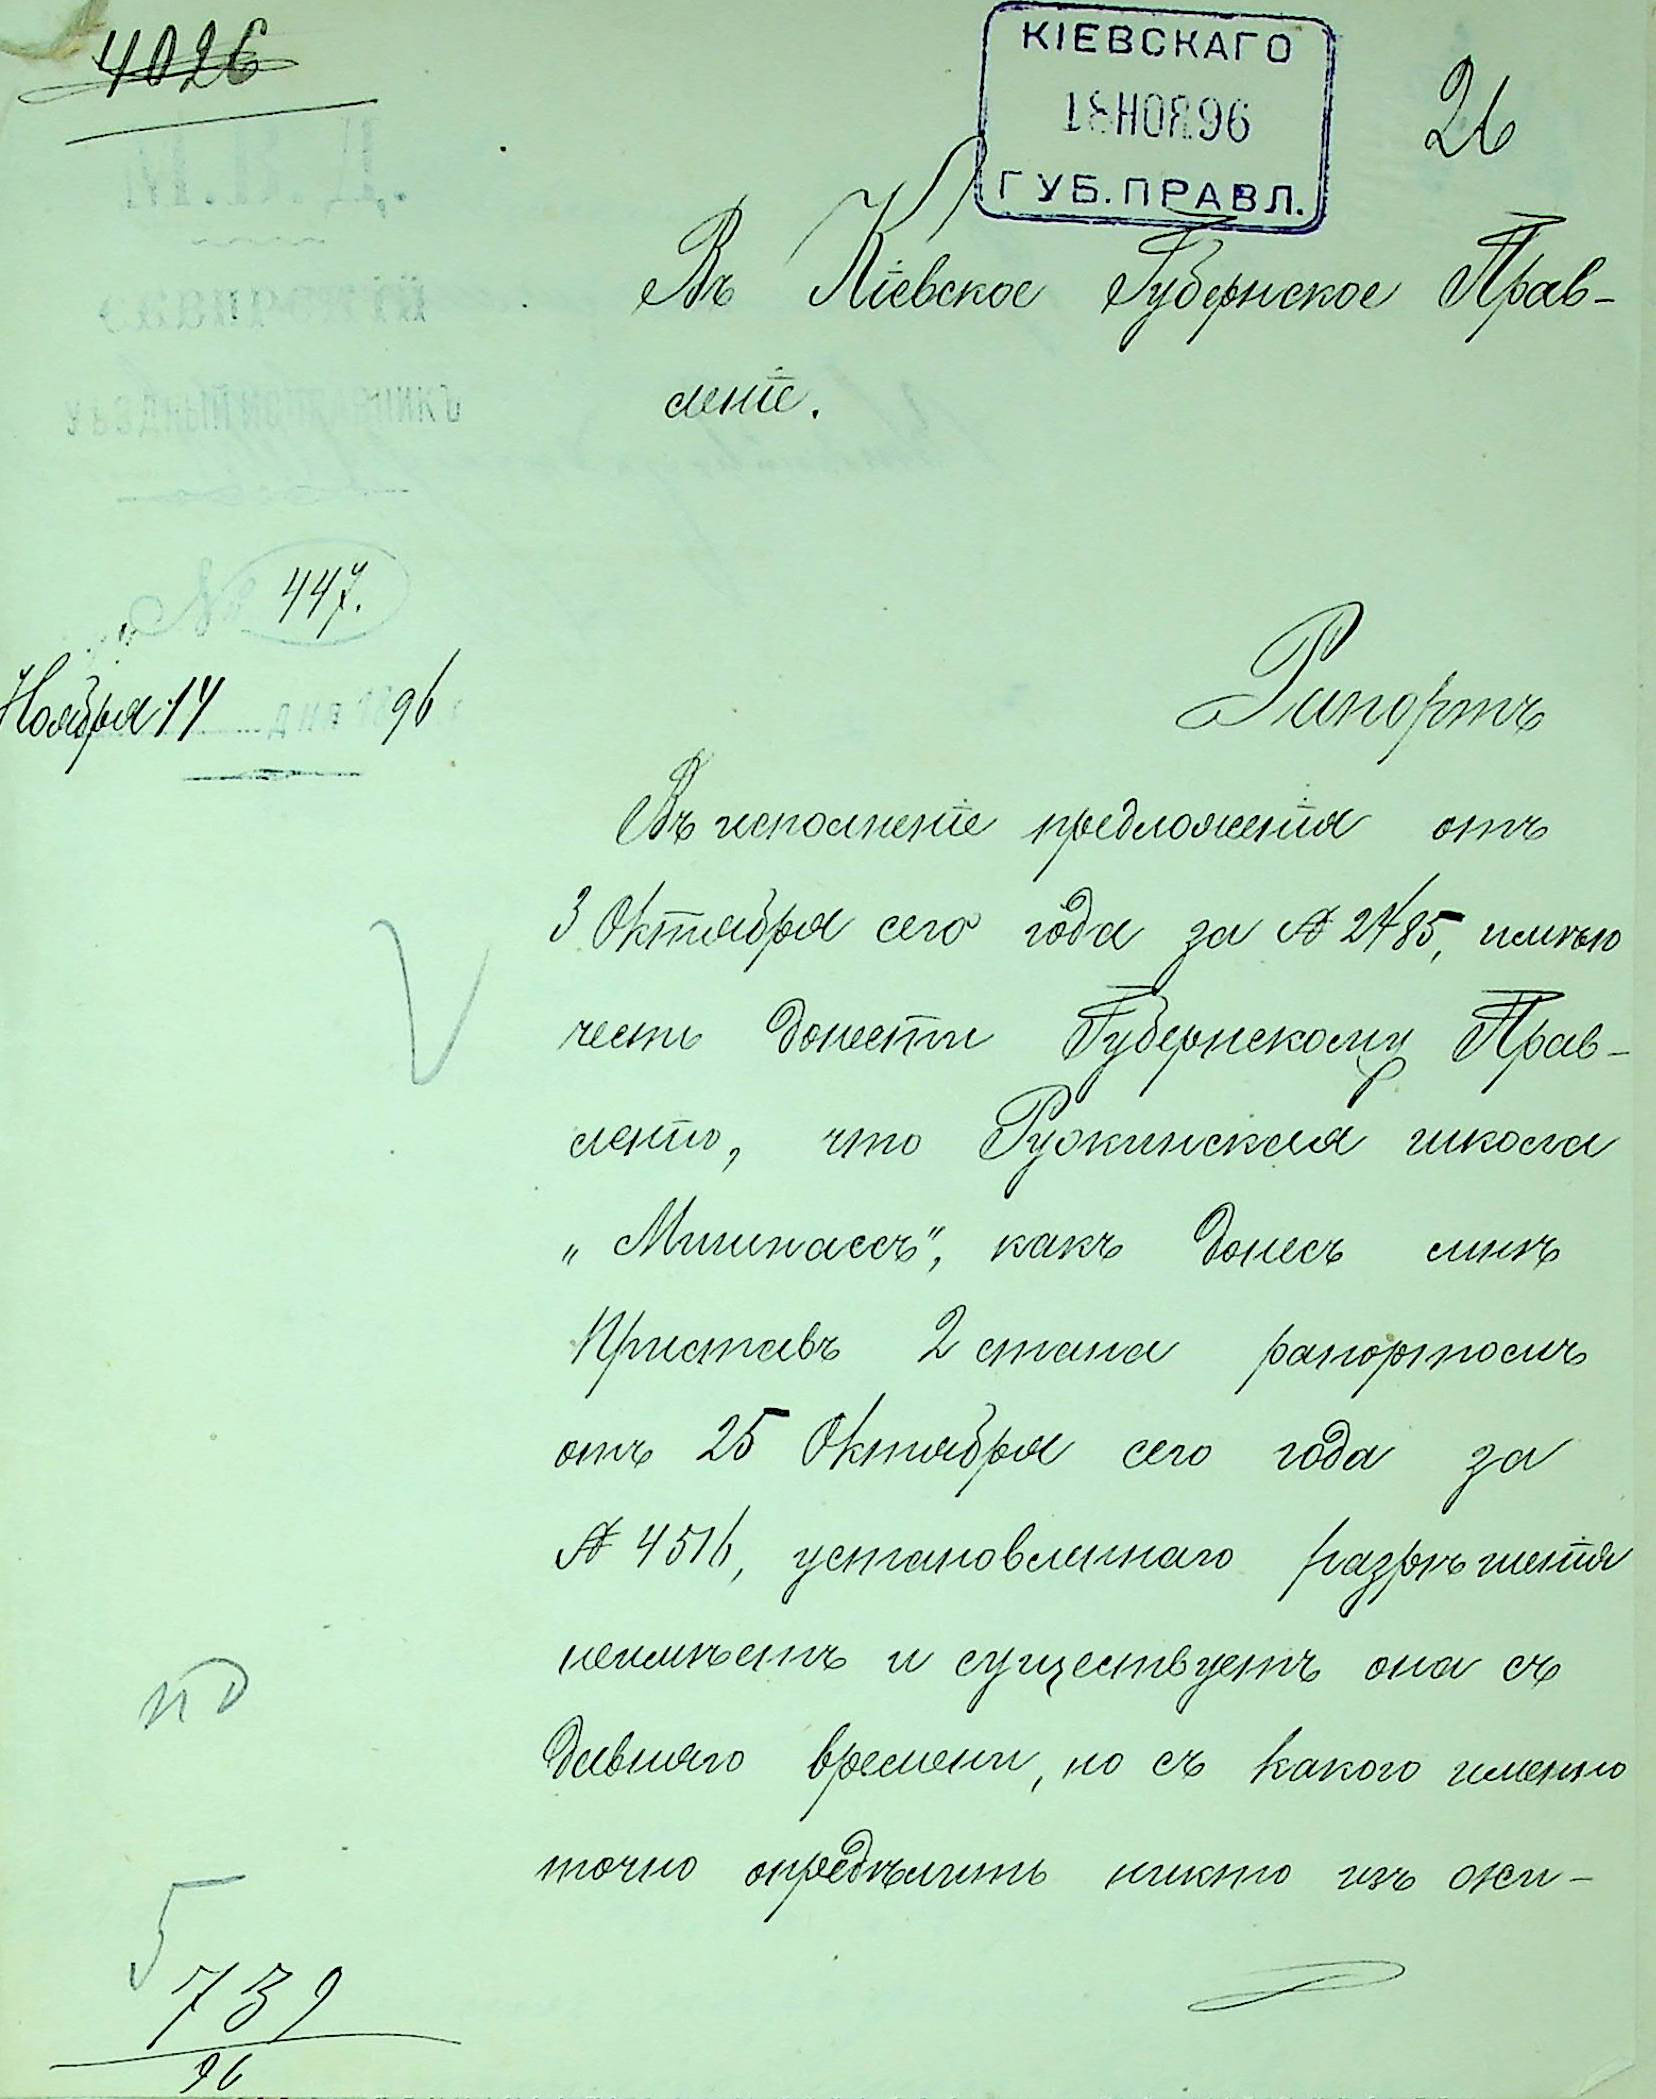 4026
КІЕВСКАГО
18 НОЯ 96
ГУБ. ПРАВЛ.
26
Въ Кіевское Губернское Прав-
леніе.
№ 447.
Ноября 14 96
Рапортъ
Въ исполненіе предложенія отъ
3 Октября сего года за № 2485, имѣю
честь донести Губернскому Прав-
ленію, что Ружинская школа
„Мишнаесъ“, какъ донесъ мнѣ
Приставъ 2 стана рапортомъ
отъ 25 Октября сего года за
№ 4516, установленнаго разрѣшенія
неимѣетъ и существуетъ она съ
давняго времени, но съ какого именно
точно опредѣлить никто изъ жи-
5
739
96